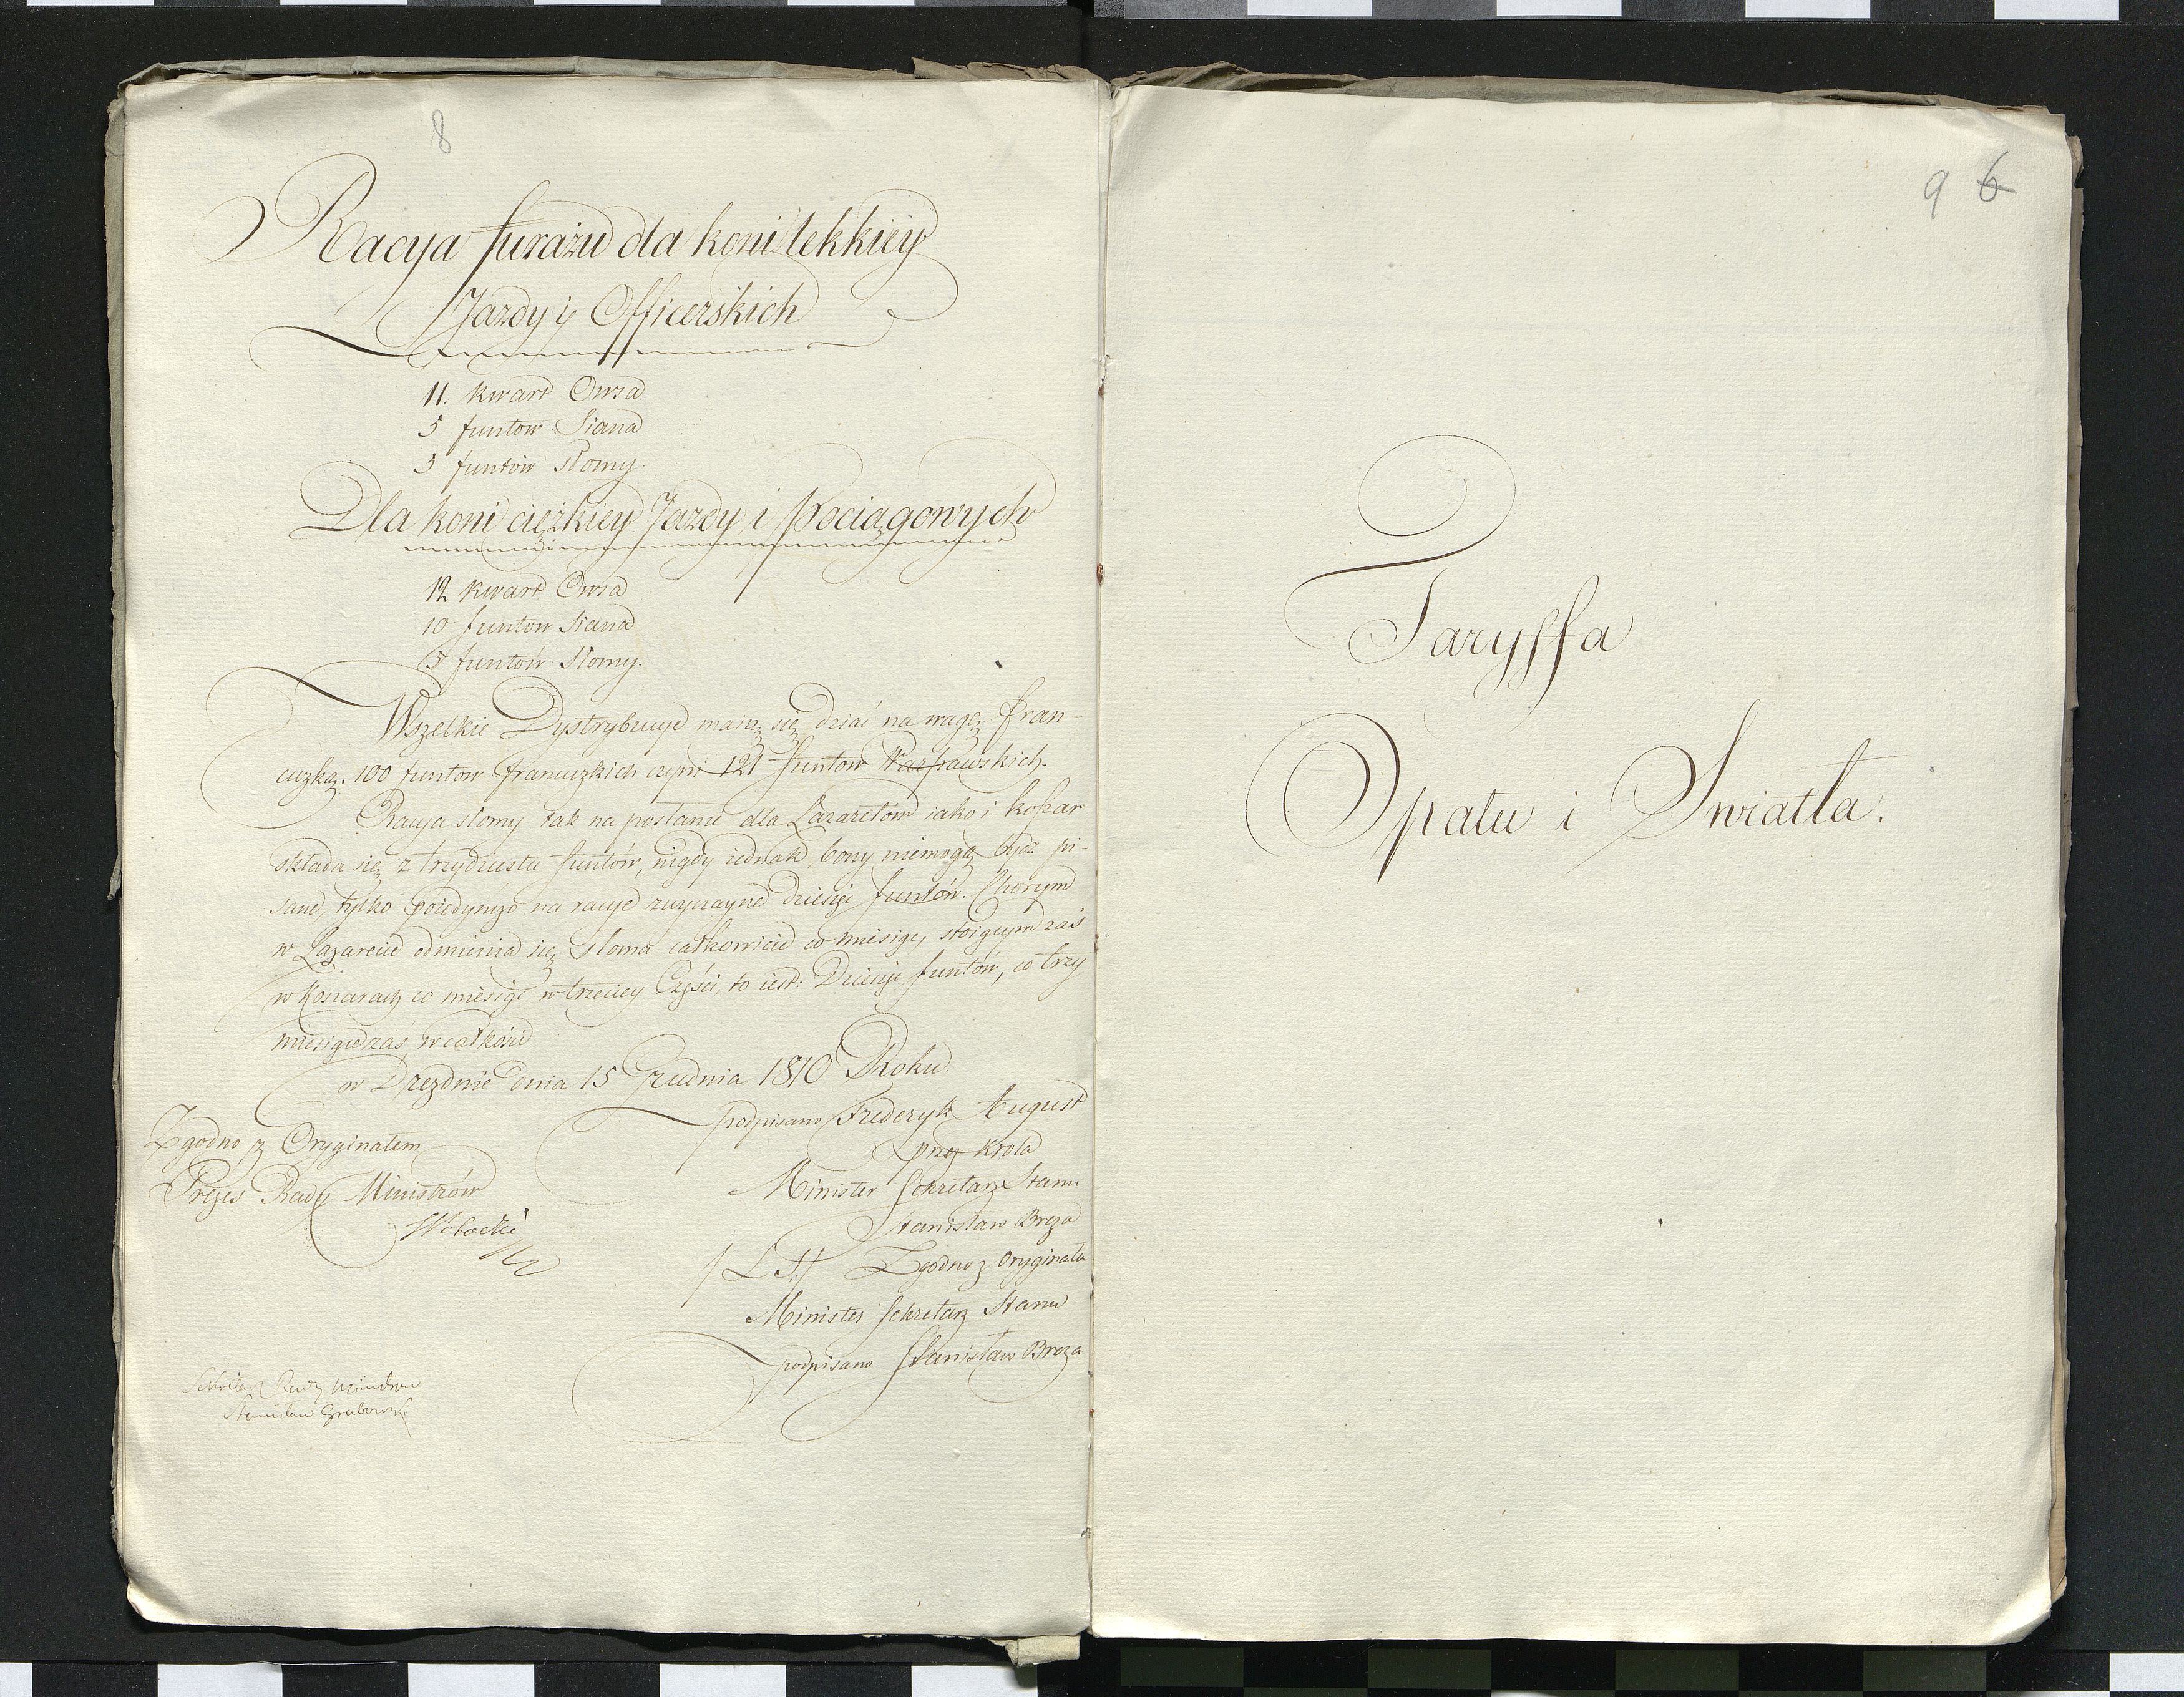 8
Racya furażu dla koni lekkiéy
Jazdy i Officerskich
11. kwart Owsa
5 funtow Siana
3 funtów słomy.
Dla koni ciężkiey Jazdy i pociągowych
12 kwart Owsa
10 funtow Siana
5 funtów słomy.
Wszelkie Dystrybucye maią się dziać na wagę fran-
cuzką. 100 funtow francuzkich czyni 121 funtow Warszawskich.
Racya słomy tak na posłanie dla Lazaretów iako i koszar
składa się z trzydziestu funtów, nigdy iednak bony niemogą bydź pi-
sane, tylko poiedynczo na racye zwyczayne dziesięć funtów. Chorym
w Lazarecie odmienia się słoma całkowicie co miesiąc, stoiącym zaś
w Koszarach co miesiąc w trzeciey Części, to iest: Dziesięć funtów, co trzy
miesiące zaś w całkości
w Dreznie dnia 15 Grudnia 1810 Roku.
podpisano Frederyk August
Zgodno z Oryginałem
przez Krola
Prezes Rady Ministrów
Minister Sekretarz Stanu
Stanisław Breza
/L.S./ Zgodno z Oryginałe
Minister Sekretarz Stanu
podpisano Stanisław Breza
Sekretarz Rady Ministrow
Stanisław Grabowski
9 6
Taryffa
Opału i Swiatła.